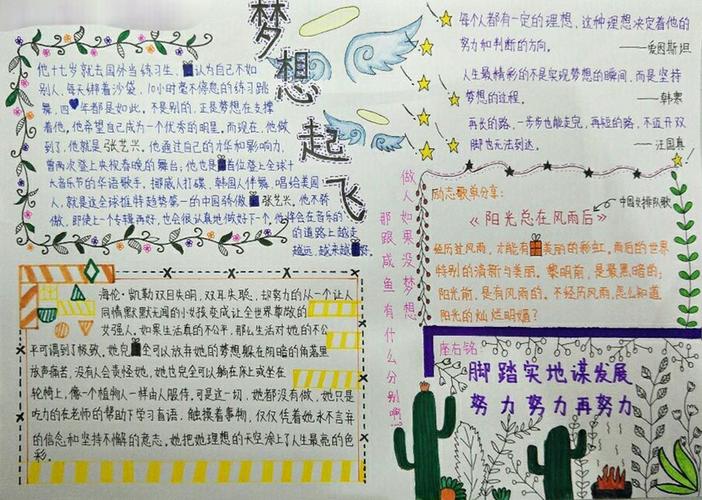 梦想起飞
他十七岁就去国外当练习生,认为自己不如
别人,每天绑着沙袋,10小时毫不停怠的练习跳
舞,四年都是如此。不是别的,正是梦想在支撑
着他,他希望自己成为一个优秀的明星。而现在,他做
到了,他就是张艺兴,他通过自己的才华和影响力,
曾两次登上央视春晚的舞台;他也是首位登上全球十
大音乐节的华语歌手,挪威人打碟,韩国人伴舞,唱给美国
人,就是这全球推特趋势第一的中国骄傲。张艺兴,他不骄
傲,即使上一个专辑再好,也会很认真地做好下一个,他将会在音乐的
的道路上越走
越远,越来越好。
海伦·凯勒双目失明,双耳失聪,却努力的从一个让人
同情默默无闻的小女孩变成让全世界尊敬的
女强人。如果生活真的不公平,那么生活对她的不公
平可谓到了极致。她完全可以放弃她的梦想躲在阴暗的角落里
放声痛苦,没有人会责怪她,她也完全可以躺在床上或坐在
轮椅上,像一个植物人一样由人服侍,可是这一切,她都没有做,她只是
吃力的在老师的帮助下学习盲语,触摸着事物,仅仅凭着她永不言弃
的信念和坚持不懈的意志。她把她理想的天空涂上了人生最亮的色
彩。
每个人都有一定的理想,这种理想决定着他的
努力和判断的方向。
——爱因斯坦
人生最精彩的不是实现梦想的瞬间,而是坚持
梦想的过程。
——韩寒
再长的路,一步步也能走完,再短的路,不迈开双
脚也无法到达。
——汪国真
做人如果没梦想
那跟咸鱼有什么分别啊!
励志歌单分享:
中国女排队歌
《阳光总在风雨后》
经历过风雨,才能有美丽的彩虹。雨后的世界
特别的清新与美丽。黎明前,是最黑暗的;
阳光前,是有风雨的。不经历风雨,怎么知道
阳光的灿烂明媚?
座右铭:
脚踏实地谋发展
努力努力再努力